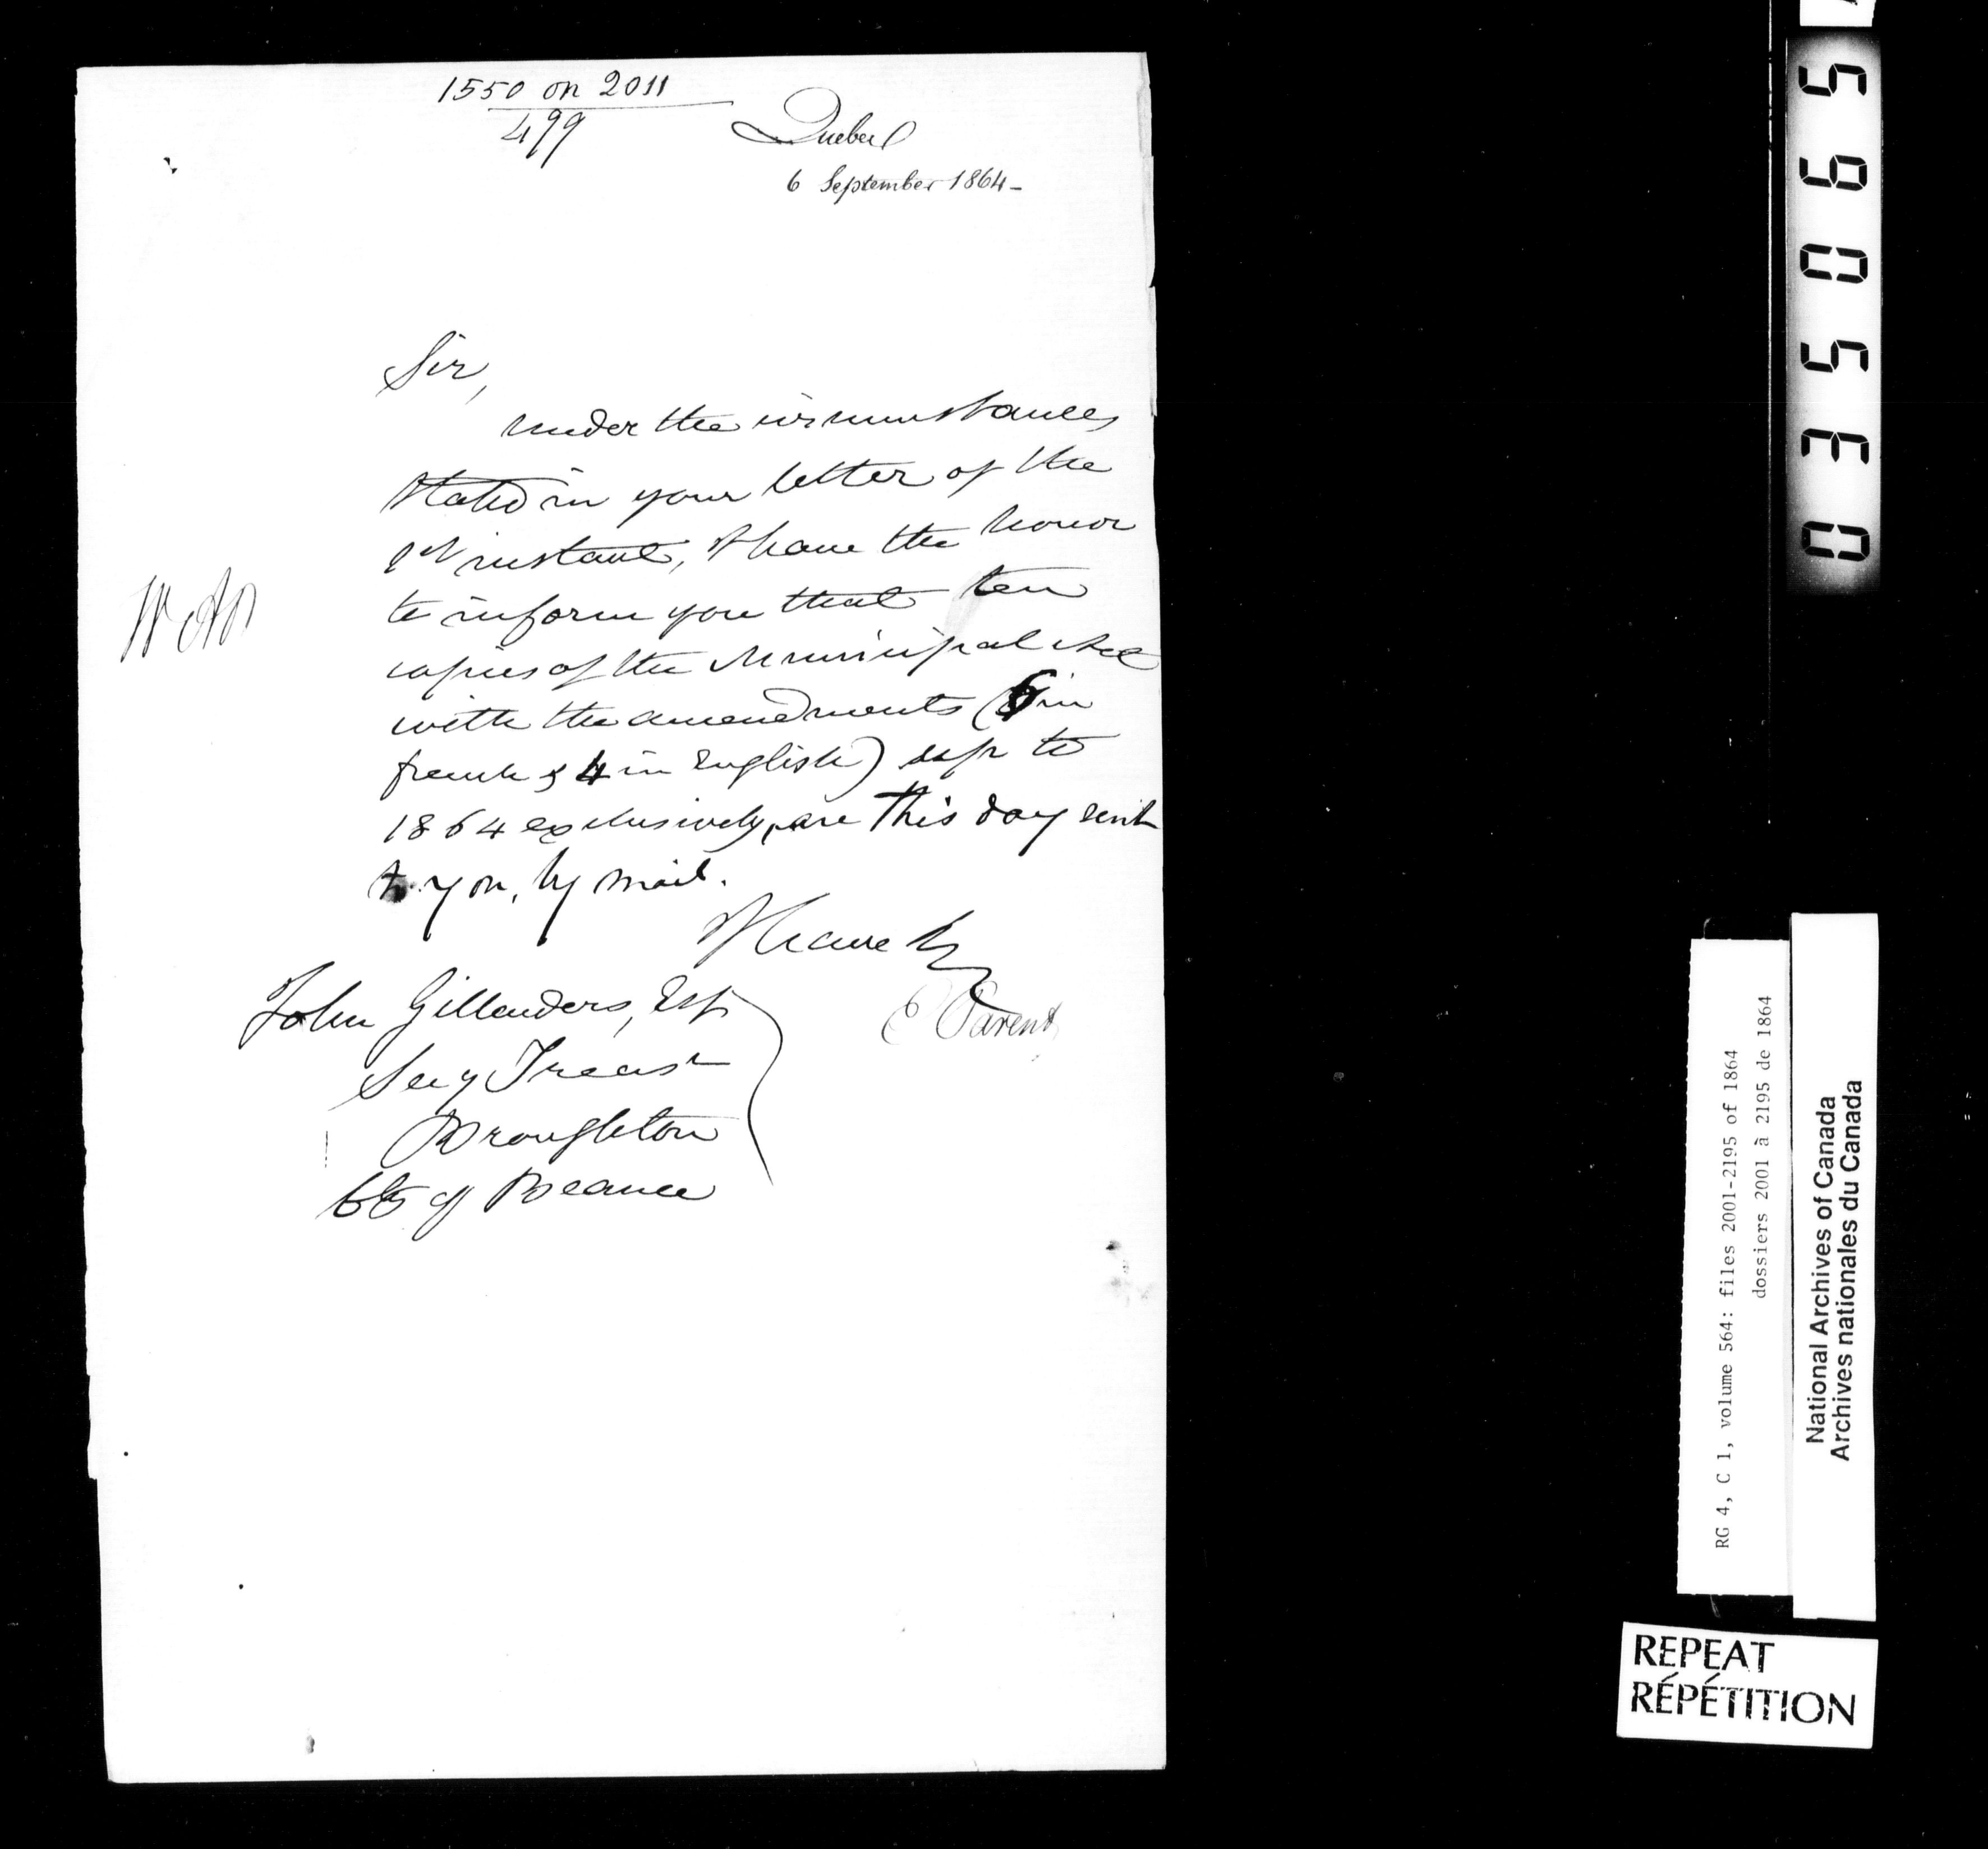 1550 on 2011
499
Quebec
6 September 1864-
Sir,
under the circumstances
stated in your letter of the
1st instant, I have the honor
to inform you that ten
copies of the Municipal Act
with the amendments (6 in
french & 4 in English) up to
1864 exclusively, are this day sent
to you, by mail.
I have &c
E Parent
John Gillanders, Esq
Secy Treasr
Broughton
Co of Beauce
035065
RG 4, C 1, volume 564: files 2001-2195 of 1864
dossiers 2001 à 2195 de 1864
National Archives of Canada
Archives nationales du Canada
REPEAT
RÉPÉTITION